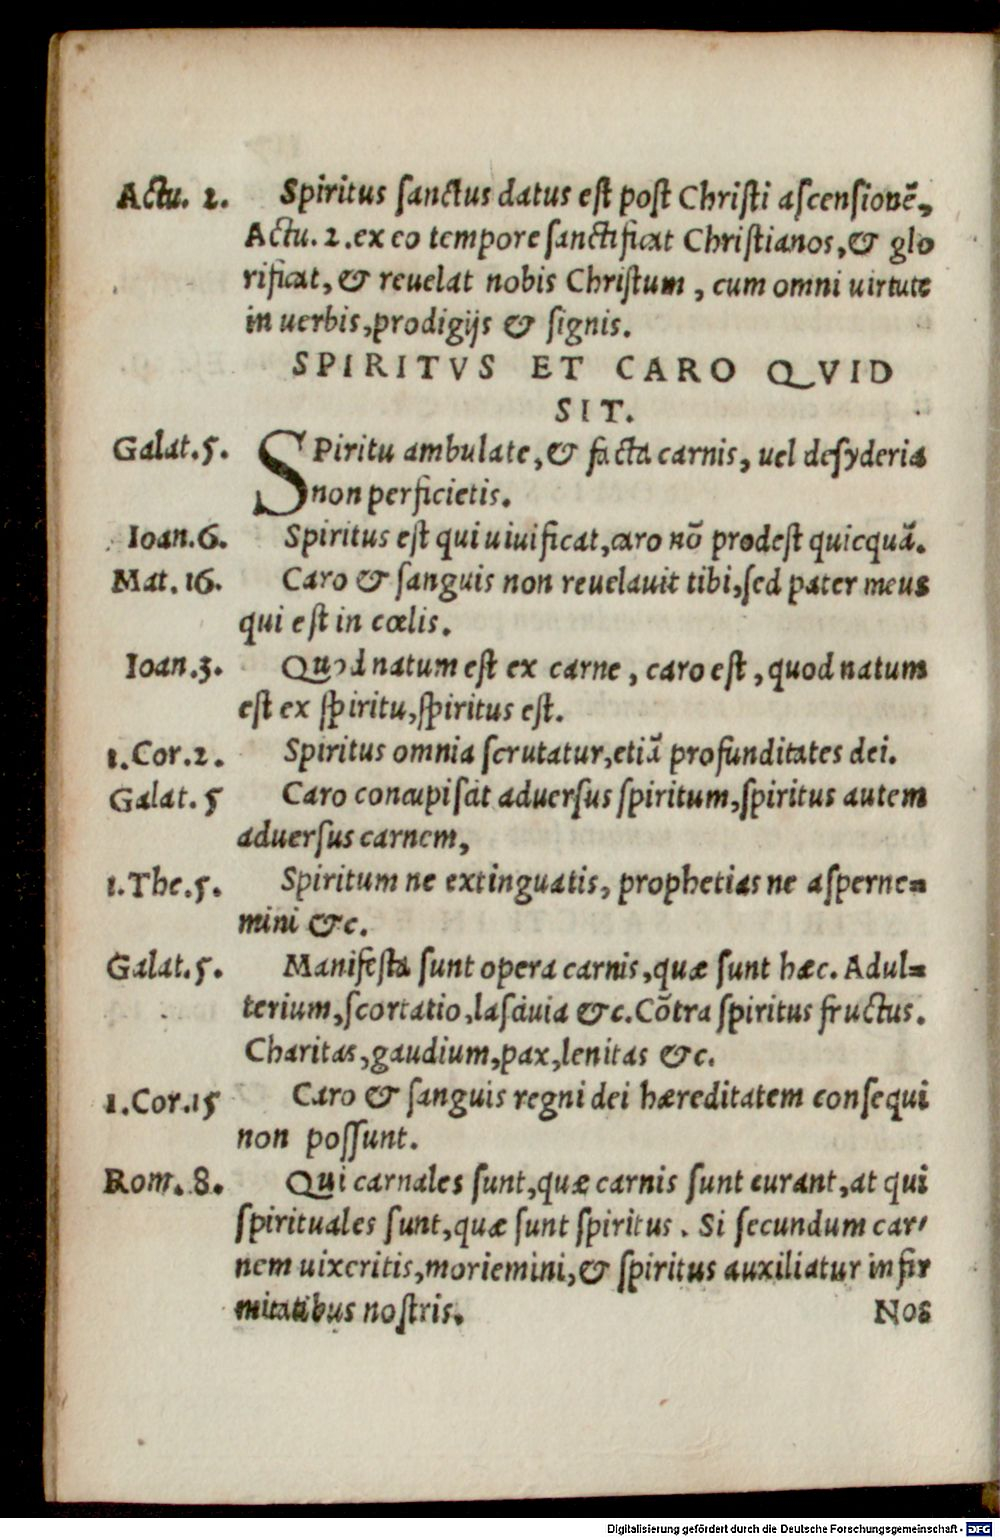 Actu. 2. Spiritus ſanctus datus eſt poſt Chriſti aſcenſionē,
Actu. 2. ex eo tempore ſanctificat Chriſtianos, & glo
rificat, & reuelat nobis Chriſtum, cum omni uirtute
in uerbis, prodigijs & ſignis.
SPIRITVS ET CARO QVID
SIT.
Galat. 5. SPiritu ambulate, & facta carnis, uel deſyderia
non perficietis.
Ioan. 6. Spiritus eſt qui uiuificat, caro nō prodeſt quicquā.
Mat. 16. Caro & ſanguis non reuelauit tibi, ſed pater meus
qui eſt in cœlis.
Ioan. 3. Quod natum eſt ex carne, caro eſt, quod natum
eſt ex ſpiritu, ſpiritus eſt.
1. Cor. 2. Spiritus omnia ſcrutatur, etiā profunditates dei.
Galat. 5 Caro concupiſcit aduerſus ſpiritum, ſpiritus autem
aduerſus carnem,
1. The. 5. Spiritum ne extinguatis, prophetias ne aſperne=
mini &c.
Galat. 5. Manifeſta ſunt opera carnis, quæ ſunt hæc. Adul=
terium, ſcortatio, laſciuia &c. Cōtra ſpiritus fructus.
Charitas, gaudium, pax, lenitas &c.
1. Cor. 15 Caro & ſanguis regni dei hæreditatem conſequi
non poſſunt.
Rom. 8. Qui carnales ſunt, quæ carnis ſunt curant, at qui
ſpirituales ſunt, quæ ſunt ſpiritus. Si ſecundum car-
nem uixeritis, moriemini, & ſpiritus auxiliatur in fir
mitatibus noſtris.
Nos
Digitalisierung gefördert durch die Deutsche Forschungsgemeinschaft - DFG